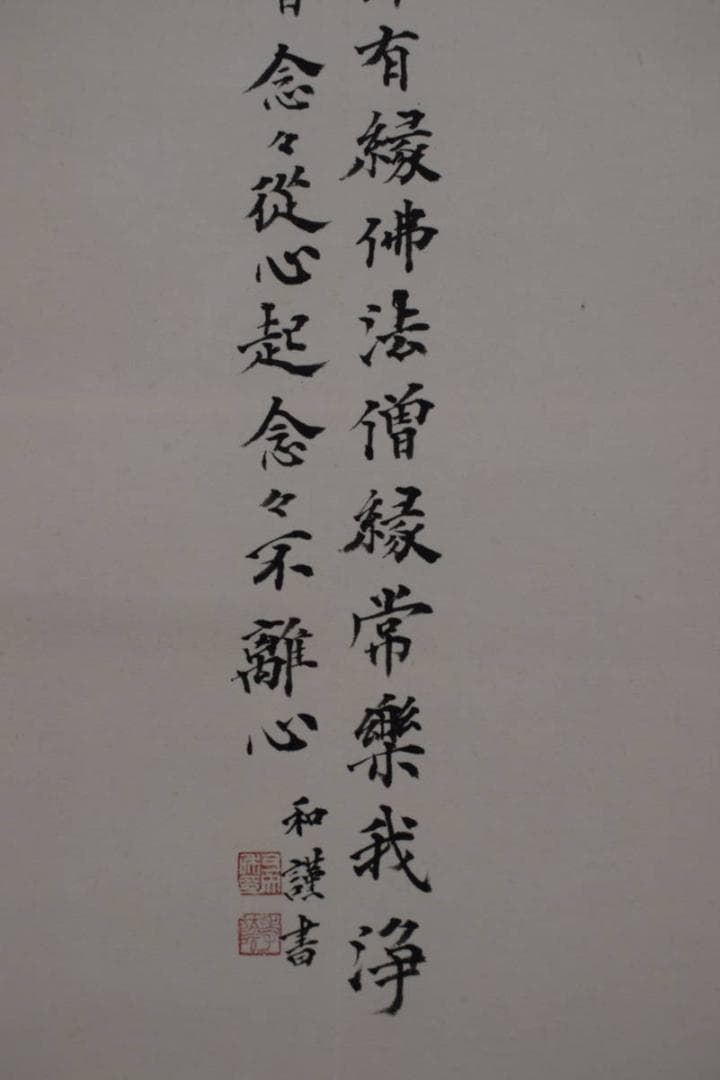 有縁佛法僧縁常樂我浄
念々從心起念々不離心
和謹書